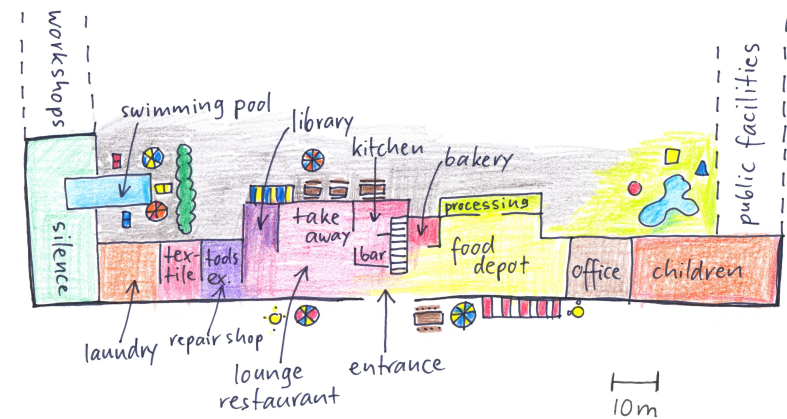 workshops
public facilities
swimming pool
library
kitchen
bakery
processing
take
away
bar
silence
tex-
tile
tools
ex.
food
depot
office
children
laundry
repair shop
lounge
restaurant
entrance
10m